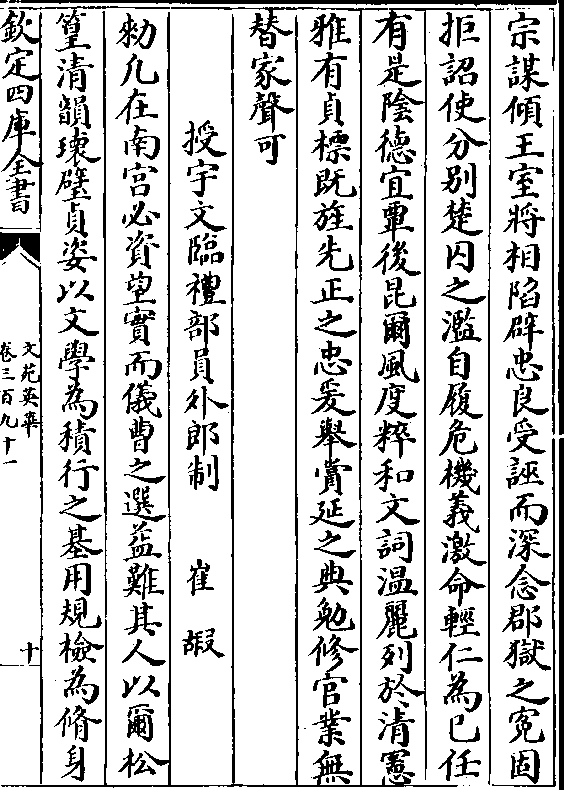 宗謀傾王室將相陷辟忠良受誣而深念郡獄之寃固
拒詔使分別楚囚之濫自履危機義激命輕仁為已任
有是陰德宜覃後昆爾風度粹和文詞温麗列於清憲
雅有貞標既旌先正之忠爰舉賞延之典勉修官業無
替家聲可
授宇文臨禮部員外郎制 崔嘏
勑凡在南宫必資望實而儀曹之選益難其人以爾松
篁清韻瓌璧貞姿以文學為積行之基用規檢為脩身
欽定四庫全書
文苑英華
卷三百九十一
十